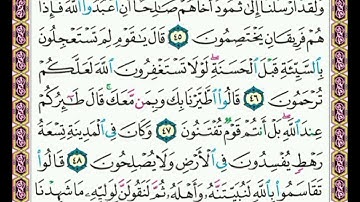 وَلَقَدْ أَرْسَلْنَآ إِلَىٰ ثَمُودَ أَخَاهُمْ صَٰلِحًا أَنِ ٱعْبُدُوا۟ ٱللَّهَ فَإِذَا
هُمْ فَرِيقَانِ يَخْتَصِمُونَ ٤٥ قَالَ يَٰقَوْمِ لِمَ تَسْتَعْجِلُونَ
بِٱلسَّيِّئَةِ قَبْلَ ٱلْحَسَنَةِ لَوْلَا تَسْتَغْفِرُونَ ٱللَّهَ لَعَلَّكُمْ
تُرْحَمُونَ ٤٦ قَالُوا۟ ٱطَّيَّرْنَا بِكَ وَبِمَن مَّعَكَ قَالَ طَٰٓئِرُكُمْ
عِندَ ٱللَّهِ بَلْ أَنتُمْ قَوْمٌ تُفْتَنُونَ ٤٧ وَكَانَ فِى ٱلْمَدِينَةِ تِسْعَةُ
رَهْطٍ يُفْسِدُونَ فِى ٱلْأَرْضِ وَلَا يُصْلِحُونَ ٤٨ قَالُوا۟
تَقَاسَمُوا۟ بِٱللَّهِ لَنُبَيِّتَنَّهُۥ وَأَهْلَهُۥ ثُمَّ لَنَقُولَنَّ لِوَلِيِّهِۦ مَا شَهِدْنَا